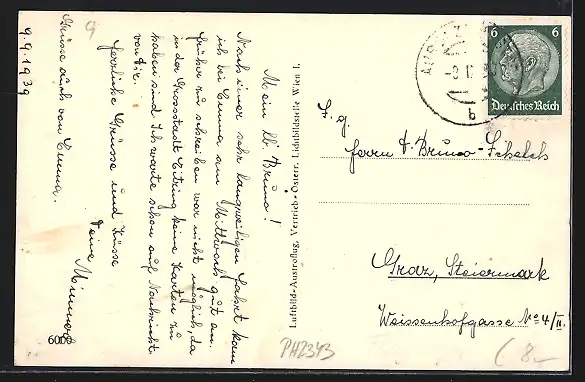 9.9.1939
9
Mein lb. Bruno!
Nach einer sehr langweiligen Fahrt kam
ich bei Emma am Mittwoch gut an.
früher zu schreiben war nicht möglich, da
in der Grossstadt keine Karten zu
haben sind. Ich warte schon auf Nachricht
von dir.
herzliche Grüsse und Küsse
Deine
Grüsse auch von Emma.
6009
Luftbild-Austroflug, Vertrieb: Österr. Lichtbildstelle, Wien I.
6 6
Deutsches Reich
b
Herrn Bruno
Graz, Steiermark
Weissenhofgasse No 4/II.
PH2343
8-